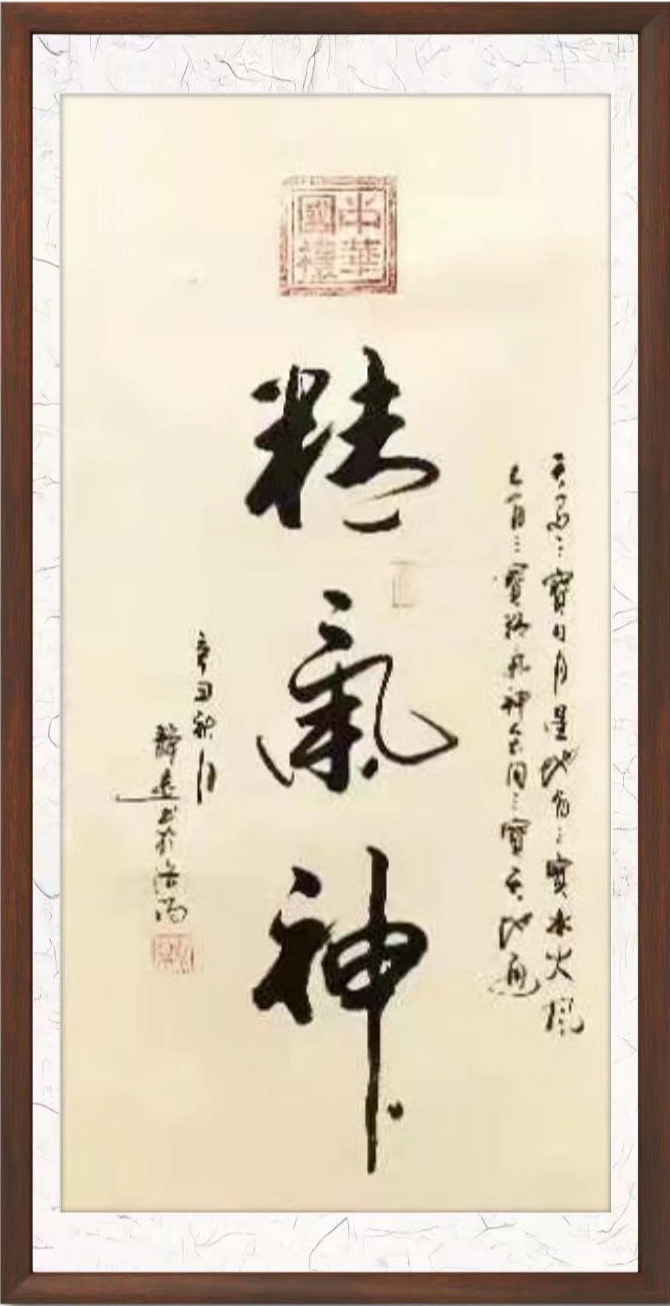 中華國禮
天有三寶日月星地有三寶水火風
人有三寶精氣神會同三寶天地通
精氣神
辛丑秋月
書於